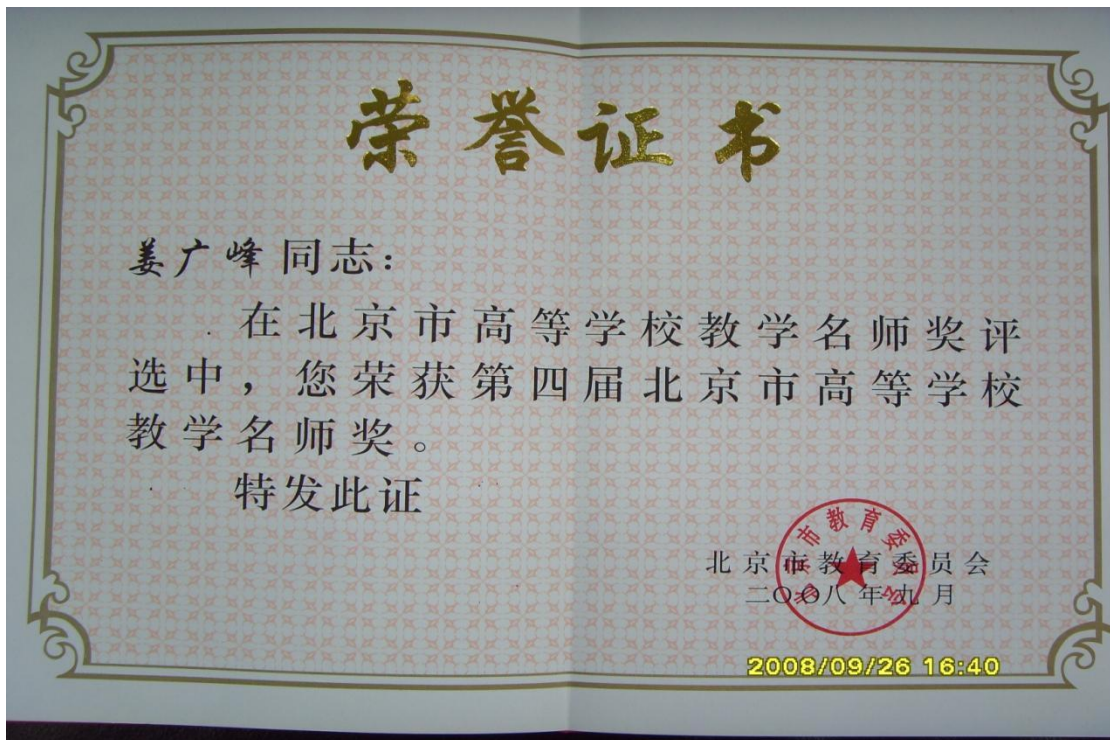 荣誉证书
姜广峰同志：
在北京市高等学校教学名师奖评
选中，您荣获第四届北京市高等学校
教学名师奖。
特发此证
北京市教育委员会
北京市教育委员会
二〇〇八年九月
2008/09/26 16:40